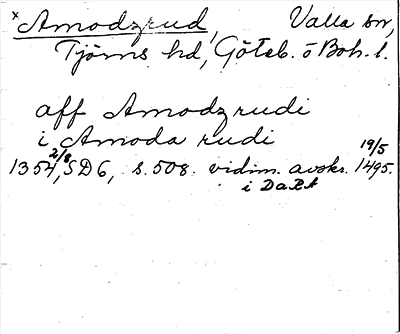 × Amodzrud, Valla sn,
Tjörns hd, Göteb. o Boh. l.
aff Amodzrudi
i Amoda rudi
1354 2/8, SD6, s. 508. vidim. avskr. 19/5 1495.
i DaRA